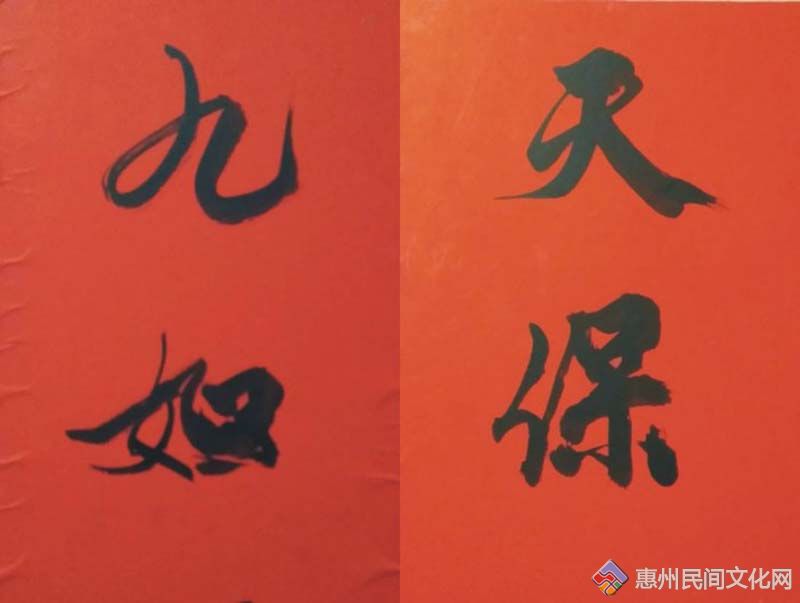 天保
九如
惠州民间文化网